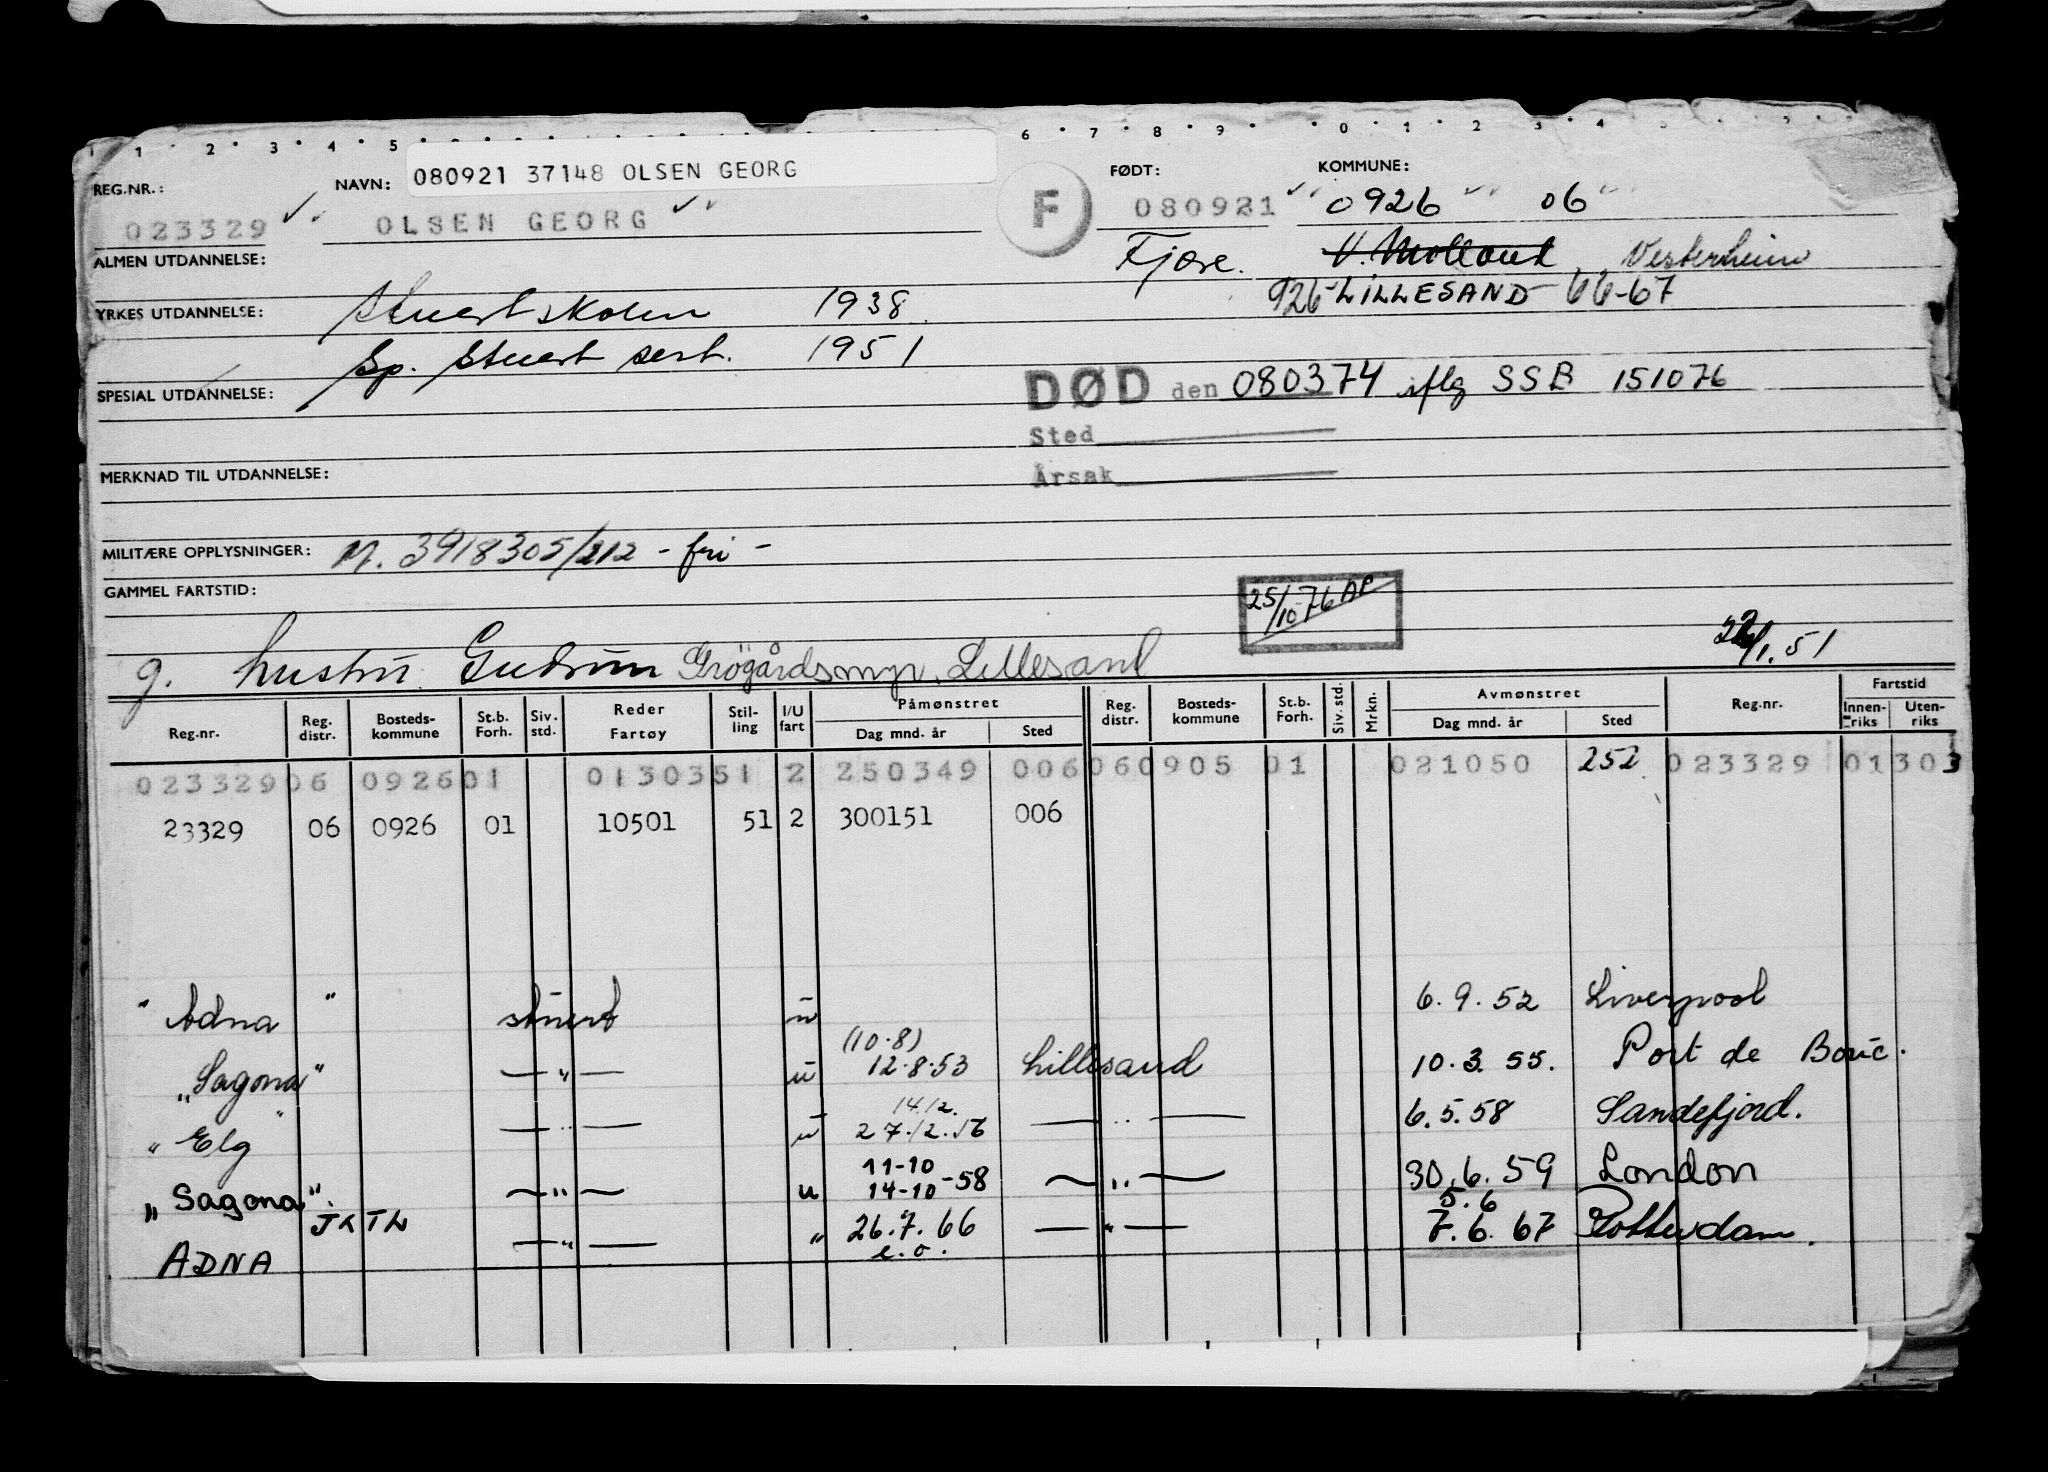 1 1 2 3 4 5 6 7 8 9 0 1 2 3 4
REG.NR.: NAVN: 080921 37148 OLSEN GEORG FØDT: KOMMUNE:
023329 OLSEN GEORG F 080921 0926 06
ALMEN UTDANNELSE: Fjære. V. Molland Vesterheim
926-LILLESAND 66-67
YRKES UTDANNELSE: Stuertskolen 1938
Sp. Stuert sert. 1951
SPESIAL UTDANNELSE: DØD den 080374 iflg SSB 151076
Sted
MERKNAD TIL UTDANNELSE: Årsak
MILITÆRE OPPLYSNINGER: M. 3918305/212 - fri -
GAMMEL FARTSTID: 25/10-76 AP
g. hustru Gudrun Grögårdsmyr, Lillesand /1.51
Reg.nr. Reg. distr. Bosteds-kommune St.b. Forh. Siv. std. Reder Fartøy Stil-ling I/U fart Påmønstret Dag mnd. år Sted Reg. distr. Bosteds-kommune St.b. Forh. Siv. std. Mrkn. Avmønstret Dag mnd. år Sted Reg.nr. Fartstid Innen-riks Uten-riks
023329 06 0926 01 01303 51 2 250349 006 06 0905 01 021050 252 023329 01 303
23329 06 0926 01 10501 51 2 300151 006
" Adna " stuert u 6.9.52 Liverpool
(10.8)
"Sagona" — " — u 12.8.53 Lillesand 10.3.55. Port de Bouc.
14.12.
" Elg " — " — u 27.12.56 — " — 6.5.58 Sandefjord.
11-10
"Sagona" — " — u 14-10-58 — " — 30.6.59 London
5.6
ADNA JKTL — " — " 26.7.66 — " — 7.6.67 Rotterdam.
e.o.